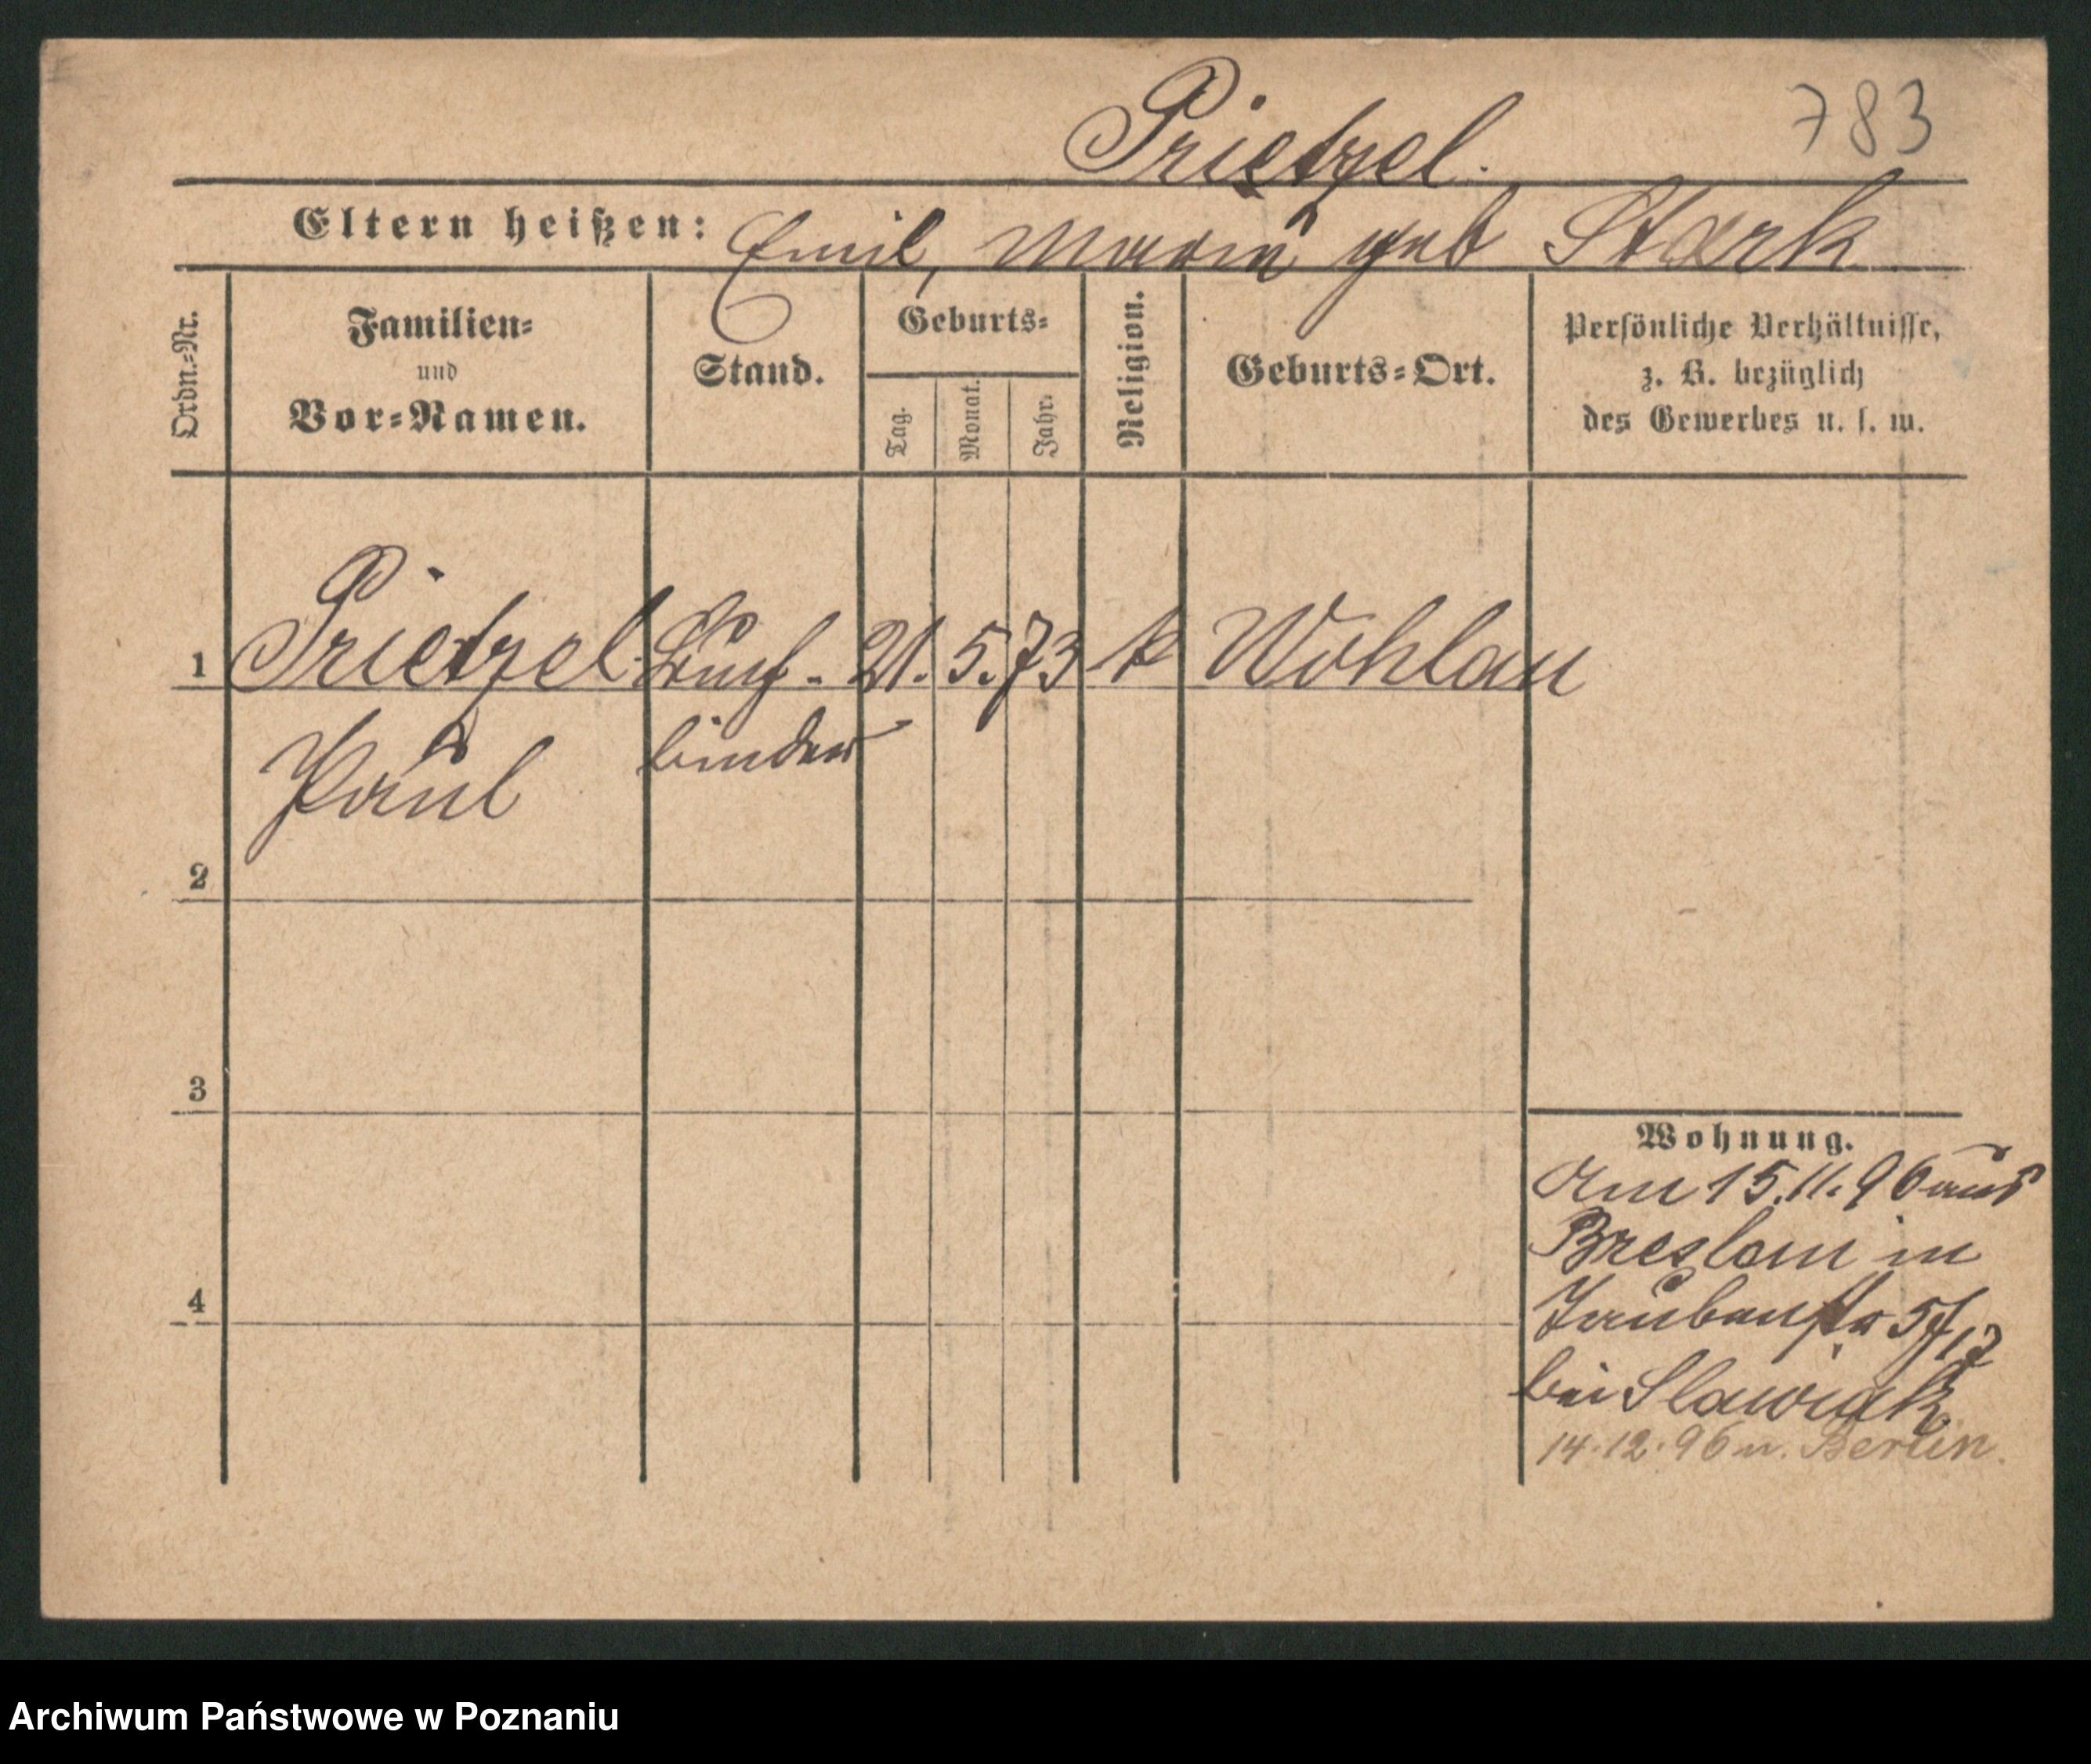 783
Prietzel.
Eltern heißen: Emil, Maria geb Stark
Ordn.=Nr.
Familien=
und
Vor=Namen.
Stand.
Geburts=
Tag.
Monat.
Jahr.
Religion.
Geburts=Ort.
Persönliche Verhältnisse,
z. B. bezüglich
des Gewerbes u. s. w.
1 Prietzel Buch- 21. 5. 73 k Wohlau
Paul binder
2
3
4
Wohnung.
Am 15.11.96 aus
Breslau in
Taubenstr 5
bei Slawiak
14.12.96 n. Berlin.
Archiwum Państwowe w Poznaniu